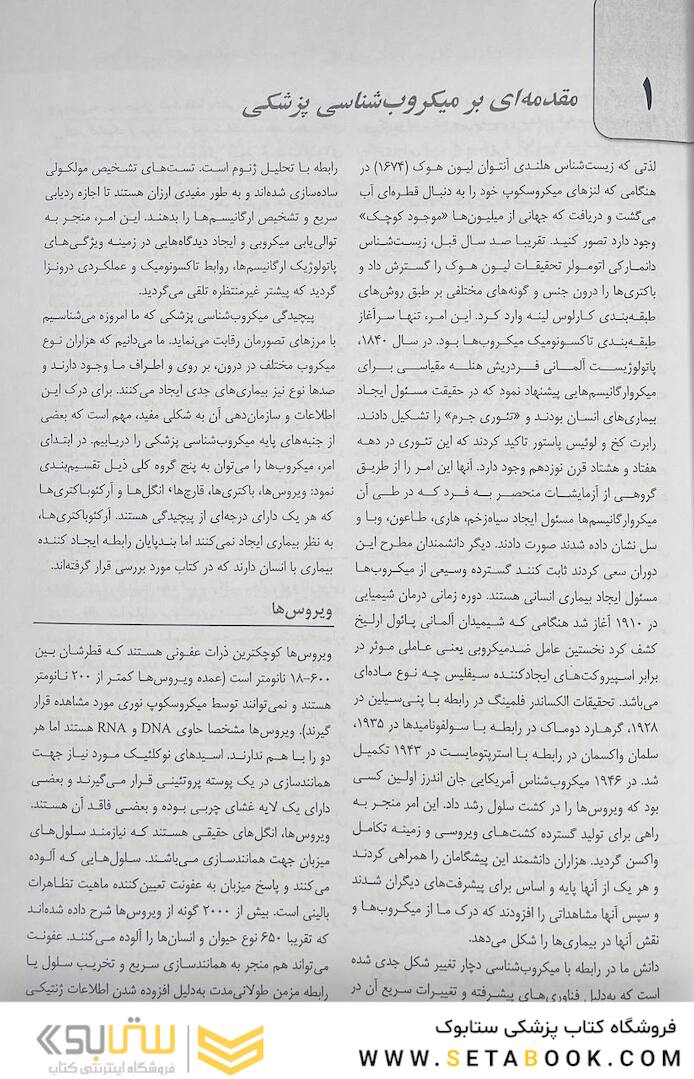 ۱
مقدمه‌ای بر میکروب‌شناسی پزشکی
لذتی که زیست‌شناس هلندی آنتوان لیون هوک (۱۶۷۴) در
هنگامی که لنزهای میکروسکوپ خود را به دنبال قطره‌ای آب
می‌گشت و دریافت که جهانی از میلیون‌ها «موجود کوچک»
وجود دارد تصور کنید. تقریبا صد سال قبل، زیست‌شناس
دانمارکی اتومولر تحقیقات لیون هوک را گسترش داد و
باکتری‌ها را درون جنس و گونه‌های مختلفی بر طبق روش‌های
طبقه‌بندی کارلوس لینه وارد کرد. این امر، تنها سرآغاز
طبقه‌بندی تاکسونومیک میکروب‌ها بود. در سال ۱۸۴۰،
پاتولوژیست آلمانی فردریش هنله مقیاسی برای
میکروارگانیسم‌هایی پیشنهاد نمود که در حقیقت مسئول ایجاد
بیماری‌های انسان بودند و «تئوری جرم» را تشکیل دادند.
رابرت کخ و لوئیس پاستور تاکید کردند که این تئوری در دهه
هفتاد و هشتاد قرن نوزدهم وجود دارد. آنها این امر را از طریق
گروهی از آزمایشات منحصر به فرد که در طی آن
میکروارگانیسم‌ها مسئول ایجاد سیاه‌زخم، هاری، طاعون، وبا و
سل نشان داده شدند صورت دادند. دیگر دانشمندان مطرح این
دوران سعی کردند ثابت کنند گسترده وسیعی از میکروب‌ها
مسئول ایجاد بیماری انسانی هستند. دوره زمانی درمان شیمیایی
در ۱۹۱۰ آغاز شد هنگامی که شیمیدان آلمانی پائول ارلیخ
کشف کرد نخستین عامل ضدمیکروبی یعنی عاملی موثر در
برابر اسپیروکت‌های ایجادکننده سیفلیس چه نوع ماده‌ای
می‌باشد. تحقیقات الکساندر فلمینگ در رابطه با پنی‌سیلین در
۱۹۲۸، گرهارد دوماک در رابطه با سولفونامیدها در ۱۹۳۵،
سلمان واکسمان در رابطه با استرپتومایست در ۱۹۴۳ تکمیل
شد. در ۱۹۴۶ میکروب‌شناس آمریکایی جان اندرز اولین کسی
بود که ویروس‌ها را در کشت سلول رشد داد. این امر منجر به
راهی برای تولید گسترده کشت‌های ویروسی و زمینه تکامل
واکسن گردید. هزاران دانشمند این پیشگامان را همراهی کردند
و هر یک از آنها پایه و اساس برای پیشرفت‌های دیگران شدند
و سپس آنها مشاهداتی را افزودند که درک ما از میکروب‌ها و
نقش آنها در بیماری‌ها را شکل می‌دهد.
دانش ما در رابطه با میکروب‌شناسی دچار تغییر شکل جدی شده
است که به‌دلیل فناوری‌های پیشرفته و تغییرات سریع آن در
رابطه با تحلیل ژنوم است. تست‌های تشخیص مولکولی
ساده‌سازی شده‌اند و به طور مفیدی ارزان هستند تا اجازه ردیابی
سریع و تشخیص ارگانیسم‌ها را بدهند. این امر، منجر به
توالی‌یابی میکروبی و ایجاد دیدگاه‌هایی در زمینه ویژگی‌های
پاتولوژیک ارگانیسم‌ها، روابط تاکسونومیک و عملکردی درونزا
گردید که پیشتر غیرمنتظره تلقی می‌گردید.
پیچیدگی میکروب‌شناسی پزشکی که ما امروزه می‌شناسیم
با مرزهای تصورمان رقابت می‌نماید. ما می‌دانیم که هزاران نوع
میکروب مختلف در درون، بر روی و اطراف ما وجود دارند و
صدها نوع نیز بیماری‌های جدی ایجاد می‌کنند. برای درک این
اطلاعات و سازمان‌دهی آن به شکلی مفید، مهم است که بعضی
از جنبه‌های پایه میکروب‌شناسی پزشکی را دریابیم. در ابتدای
امر، میکروب‌ها را می‌توان به پنج گروه کلی ذیل تقسیم‌بندی
نمود: ویروس‌ها، باکتری‌ها، قارچ‌ها، انگل‌ها و آرکئوباکتری‌ها
که هر یک دارای درجه‌ای از پیچیدگی هستند. آرکئوباکتری‌ها،
به نظر بیماری ایجاد نمی‌کنند اما بندپایان رابطه ایجاد کننده
بیماری با انسان دارند که در کتاب مورد بررسی قرار گرفته‌اند.
ویروس‌ها
ویروس‌ها کوچکترین ذرات عفونی هستند که قطرشان بین
۶۰۰–۱۸ نانومتر است (عمده ویروس‌ها کمتر از ۲۰۰ نانومتر
هستند و نمی‌توانند توسط میکروسکوپ نوری مورد مشاهده قرار
گیرند). ویروس‌ها مشخصا حاوی DNA و RNA هستند اما هر
دو را با هم ندارند. اسیدهای نوکلئیک مورد نیاز جهت
همانندسازی در یک پوسته پروتئینی قرار می‌گیرند و بعضی
دارای یک لایه غشای چربی بوده و بعضی فاقد آن هستند.
ویروس‌ها، انگل‌های حقیقی هستند که نیازمند سلول‌های
میزبان جهت همانندسازی می‌باشند. سلول‌هایی که آلوده
می‌کنند و پاسخ میزبان به عفونت تعیین‌کننده ماهیت تظاهرات
بالینی است. بیش از ۲۰۰۰ گونه از ویروس‌ها شرح داده شده‌اند
که تقریبا ۶۵۰ نوع حیوان و انسان‌ها را آلوده می‌کنند. عفونت
می‌تواند هم منجر به همانندسازی سریع و تخریب سلول یا
رابطه مزمن طولانی‌مدت به‌دلیل افزوده شدن اطلاعات ژنتیکی
فروشگاه کتاب پزشکی ستابوک
WWW.SETABOOK.COM
ستابوک
فروشگاه اینترنتی کتاب